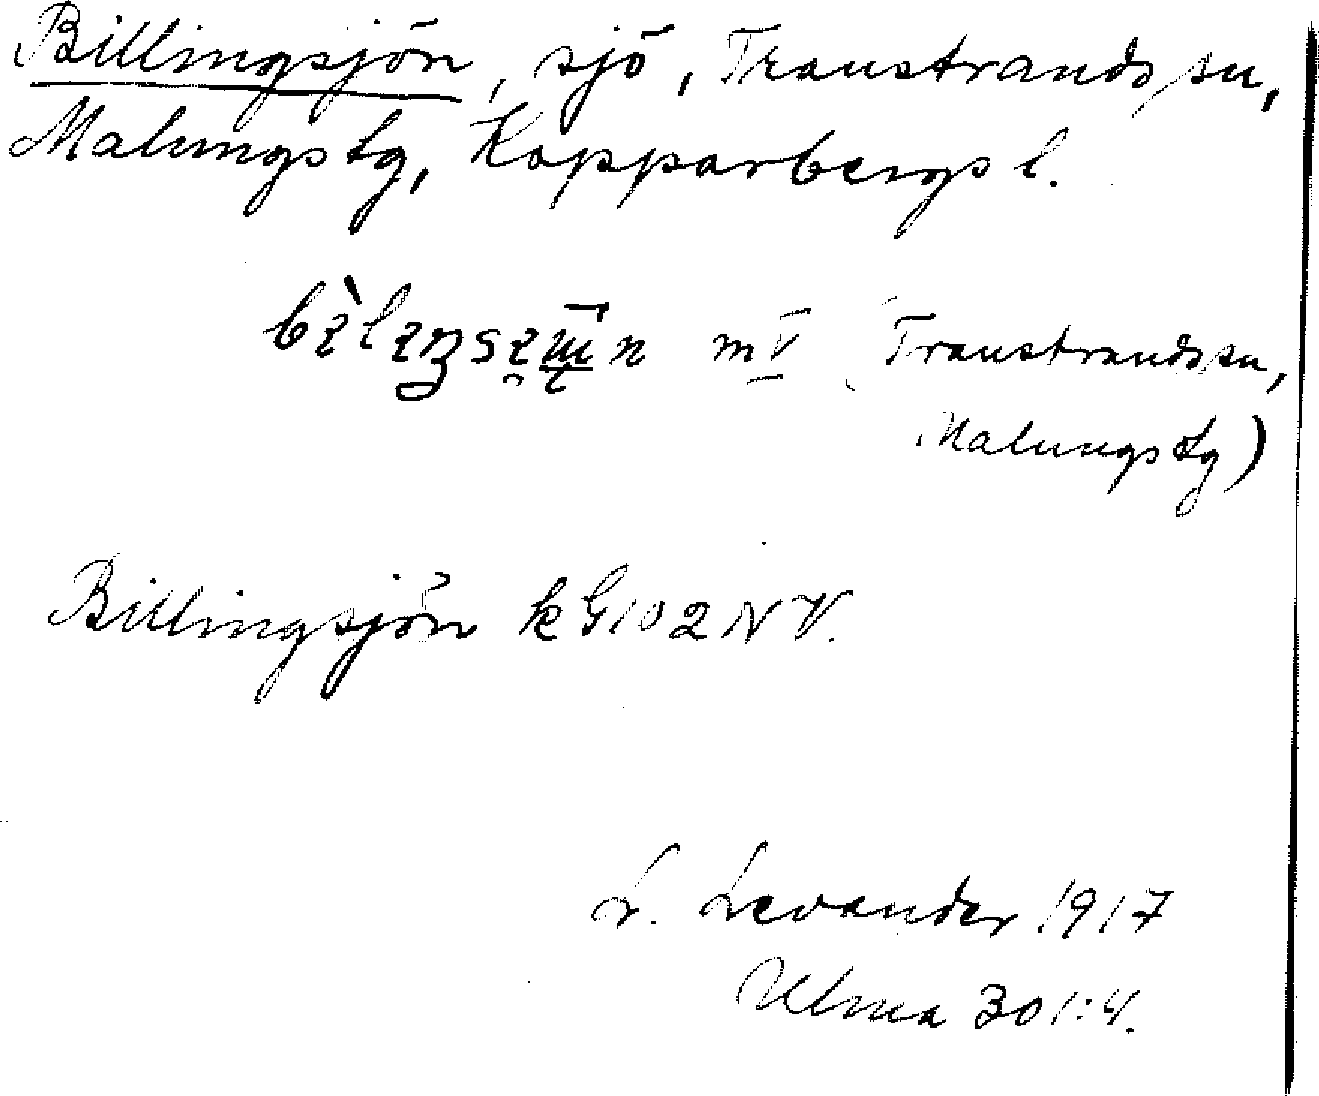 Billingsjön, sjö, Transtrands sn,
Malungs tg, Kopparbergs l.
m V (Transtrands sn,
Malungs tg)
Billingsjön k G 102 NV.
L. Levander 1917
Ulma 301:4.